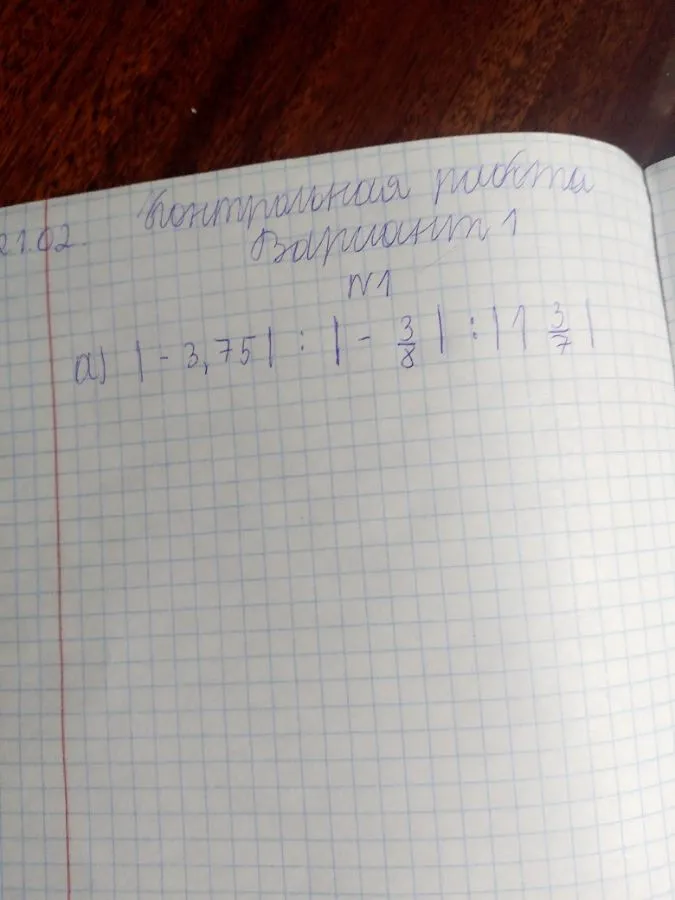 21.02. Контрольная работа
Вариант 1
№1
а) |-3,75| : |-3/8| : |1 3/7|